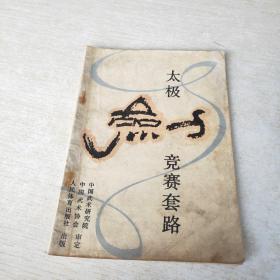 太极
剑
竞赛套路
中国武术研究院
中国武术协会 审定
人民体育出版社 出版